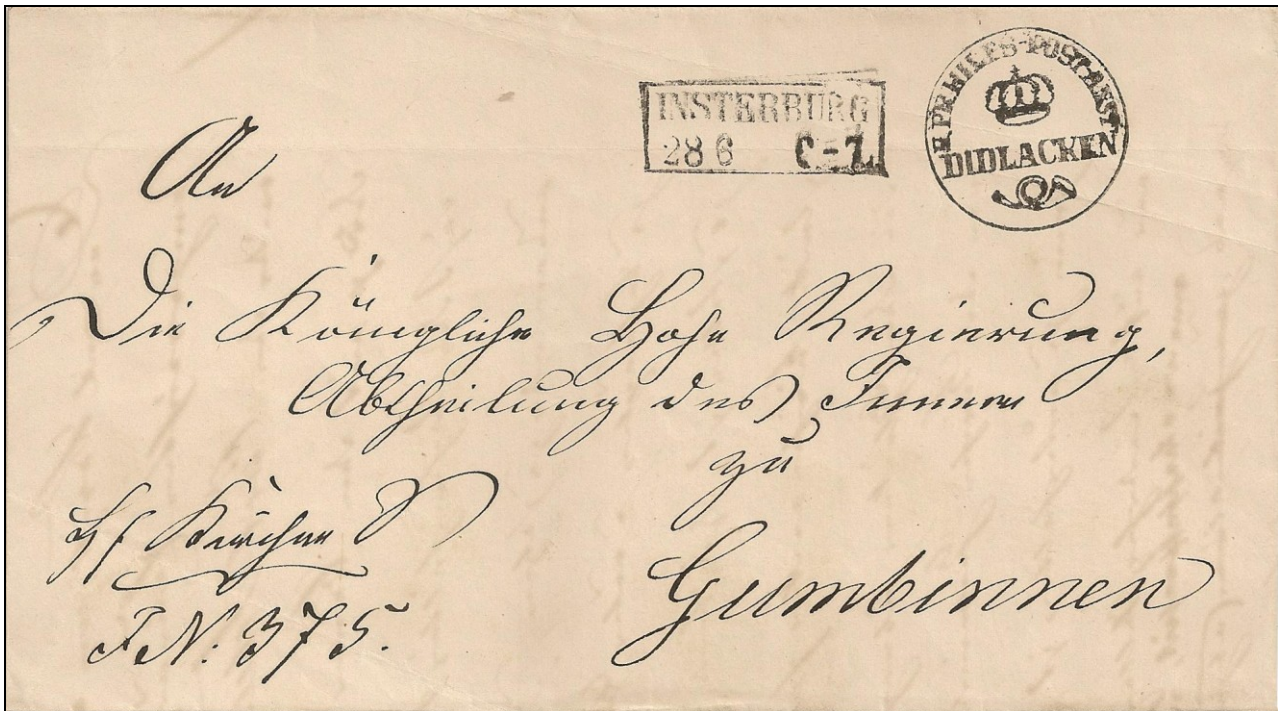 INSTERBURG
28 6 C-Z.
K.PR.HILFS-POST-ANST.
DIDLACKEN
An
Die Königliche Hohe Regierung,
Abtheilung des Innern
zu
Gumbinnen
J.N: 375.